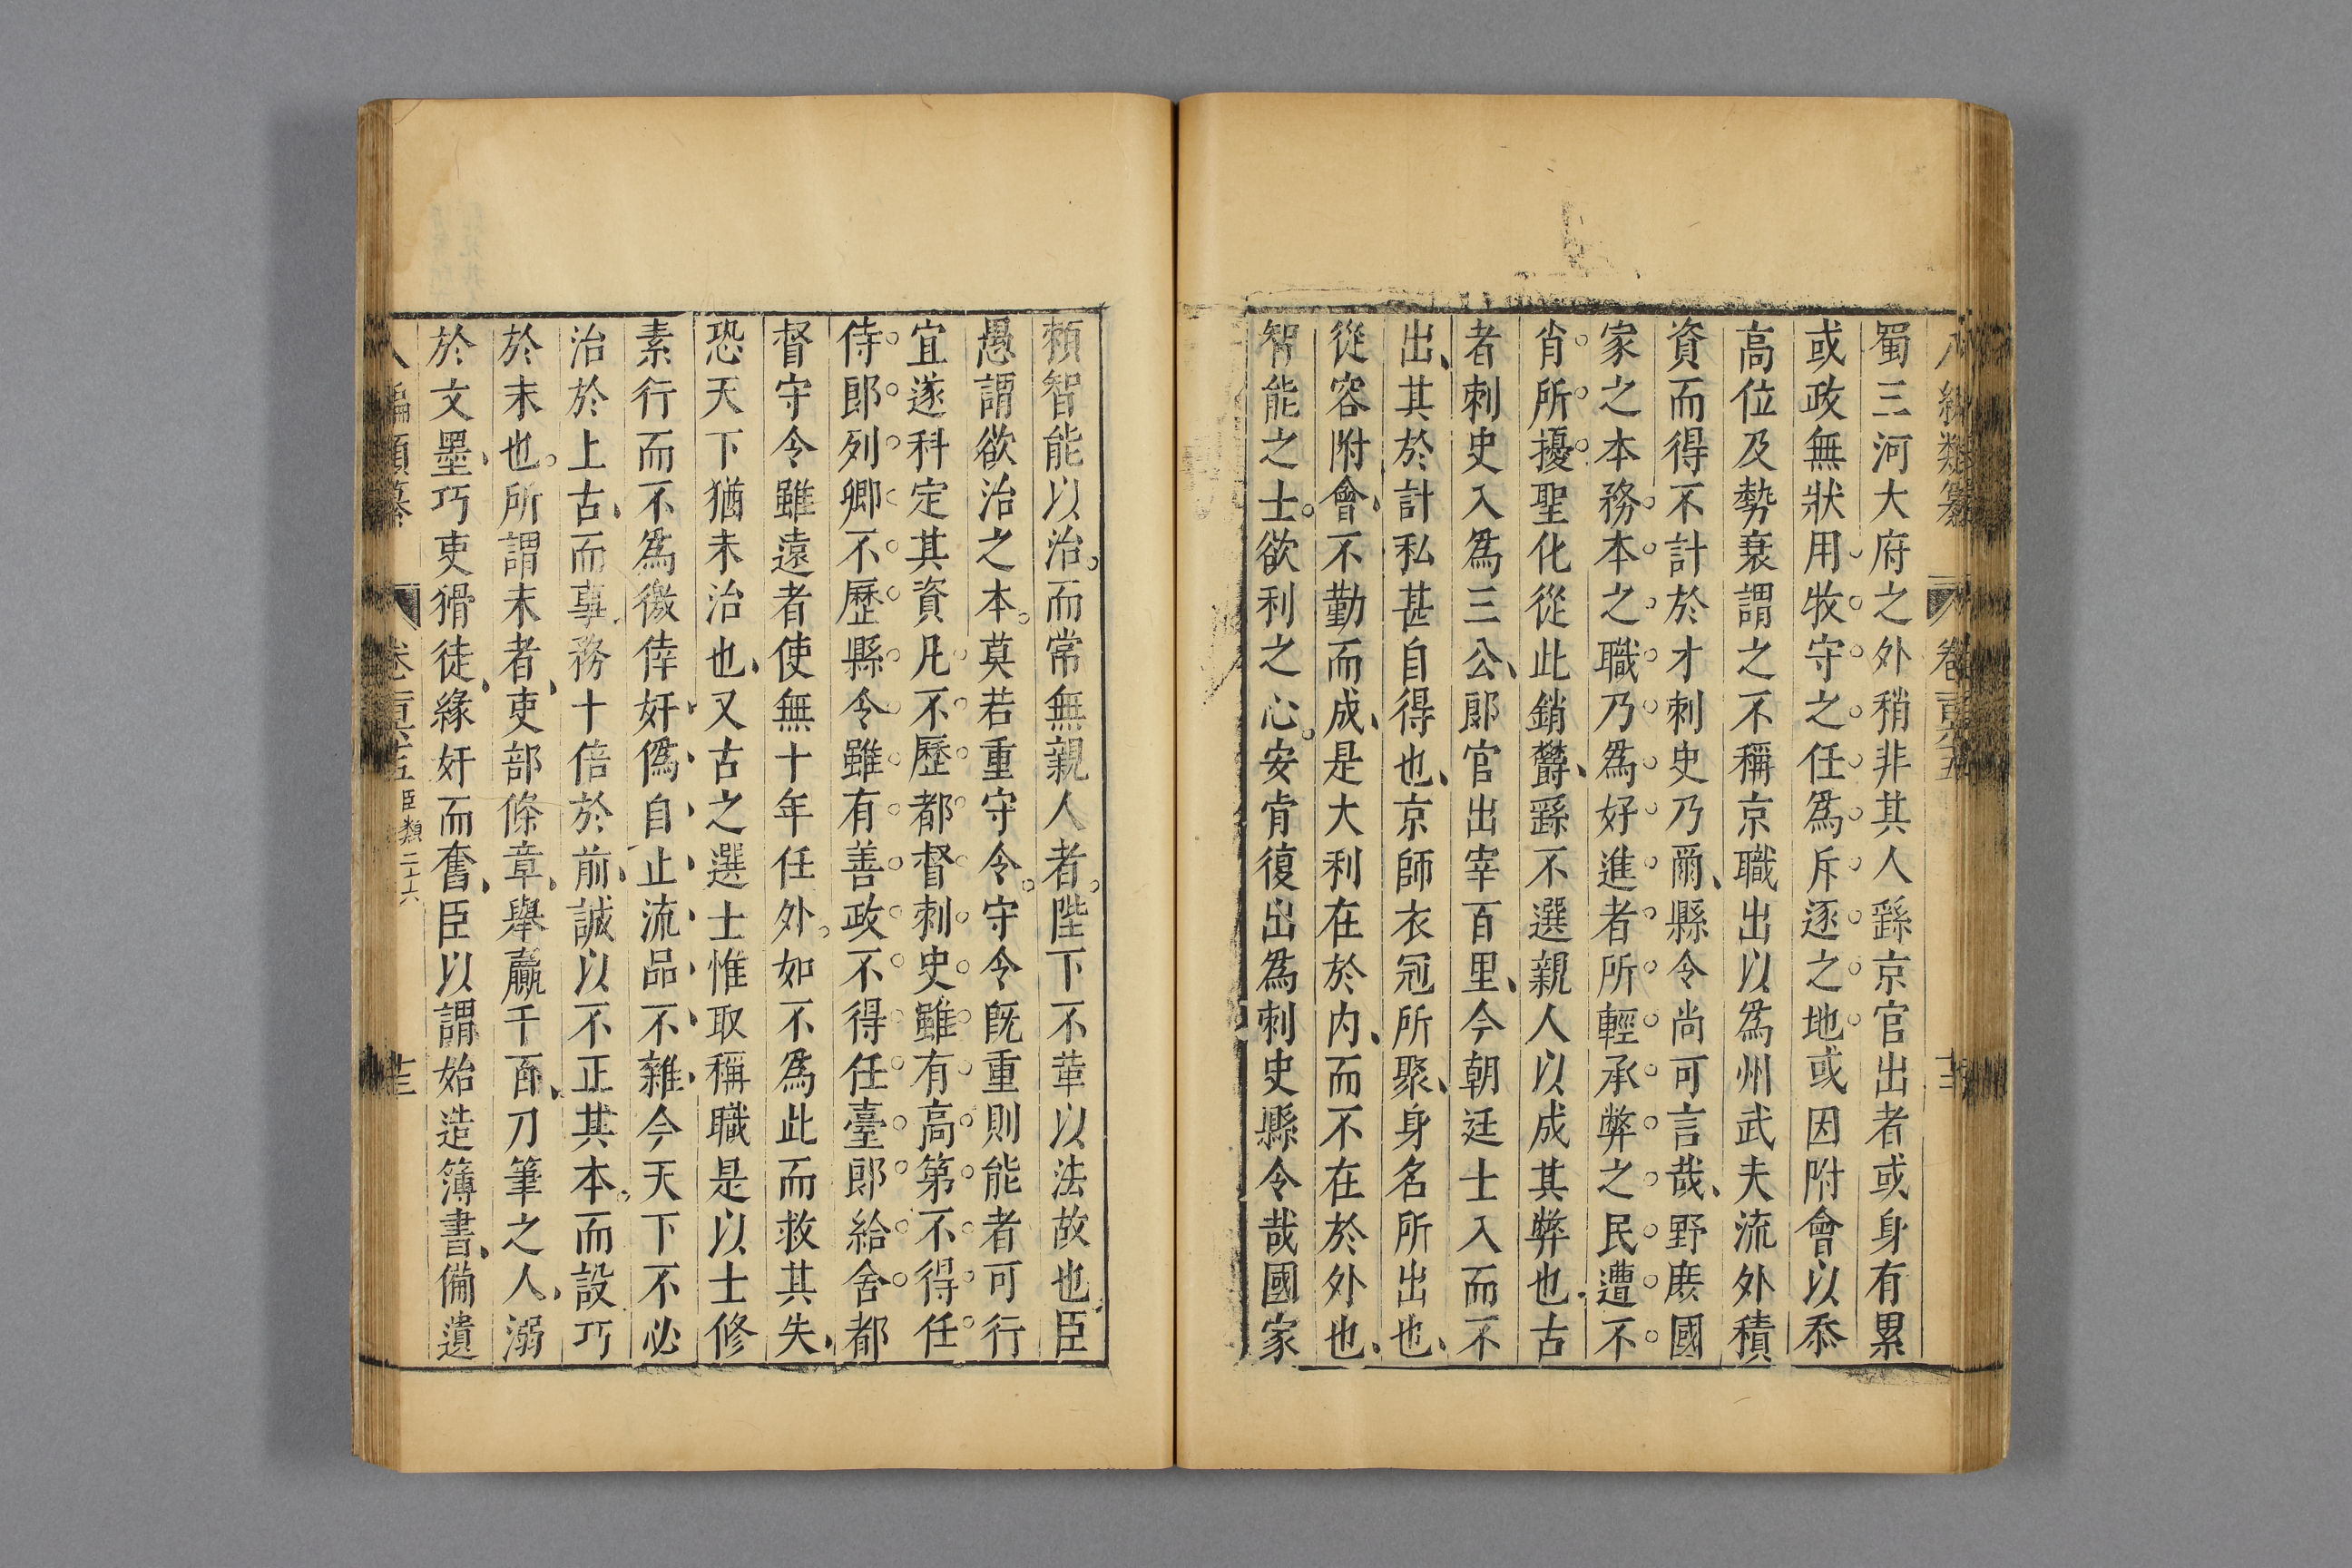 八編類纂 卷一百六十五
蜀三河大府之外稍非其人繇京官出者或身有累
或政無狀用牧守之任爲斥逐之地或因附會以忝
高位及勢衰謂之不稱京職出以爲州武夫流外積
資而得不計於才刺史乃爾縣令尚可言哉野庶國
家之本務本之職乃爲好進者所輕承弊之民遭不
肖所擾聖化從此銷鬱繇不選親人以成其弊也古
者刺史入爲三公郎官出宰百里今朝廷士入而不
出其於計私甚自得也京師衣冠所聚身名所出也
從容附會不勤而成是大利在於內而不在於外也
智能之士欲利之心安肯復出爲刺史縣令哉國家
頼智能以治而常無親人者陛下不革以法故也臣
愚謂欲治之本莫若重守令守令既重則能者可行
宜遂科定其資凡不歷都督刺史雖有高第不得任
侍郎列卿不歷縣令雖有善政不得任臺郎給舍都
督守令雖遠者使無十年任外如不爲此而救其失
恐天下猶未治也又古之選士惟取稱職是以士修
素行而不爲徼倖奸僞自止流品不雜今天下不必
治於上古而事務十倍於前誠以不正其本而設巧
於末也所謂末者吏部條章舉贏千百刀筆之人溺
於文墨巧吏猾徒緣奸而奮臣以謂始造簿書備遺
八編類纂 臣類二十六